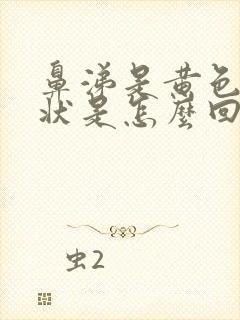 鼻涕是黄色
状是怎麼回
虫2